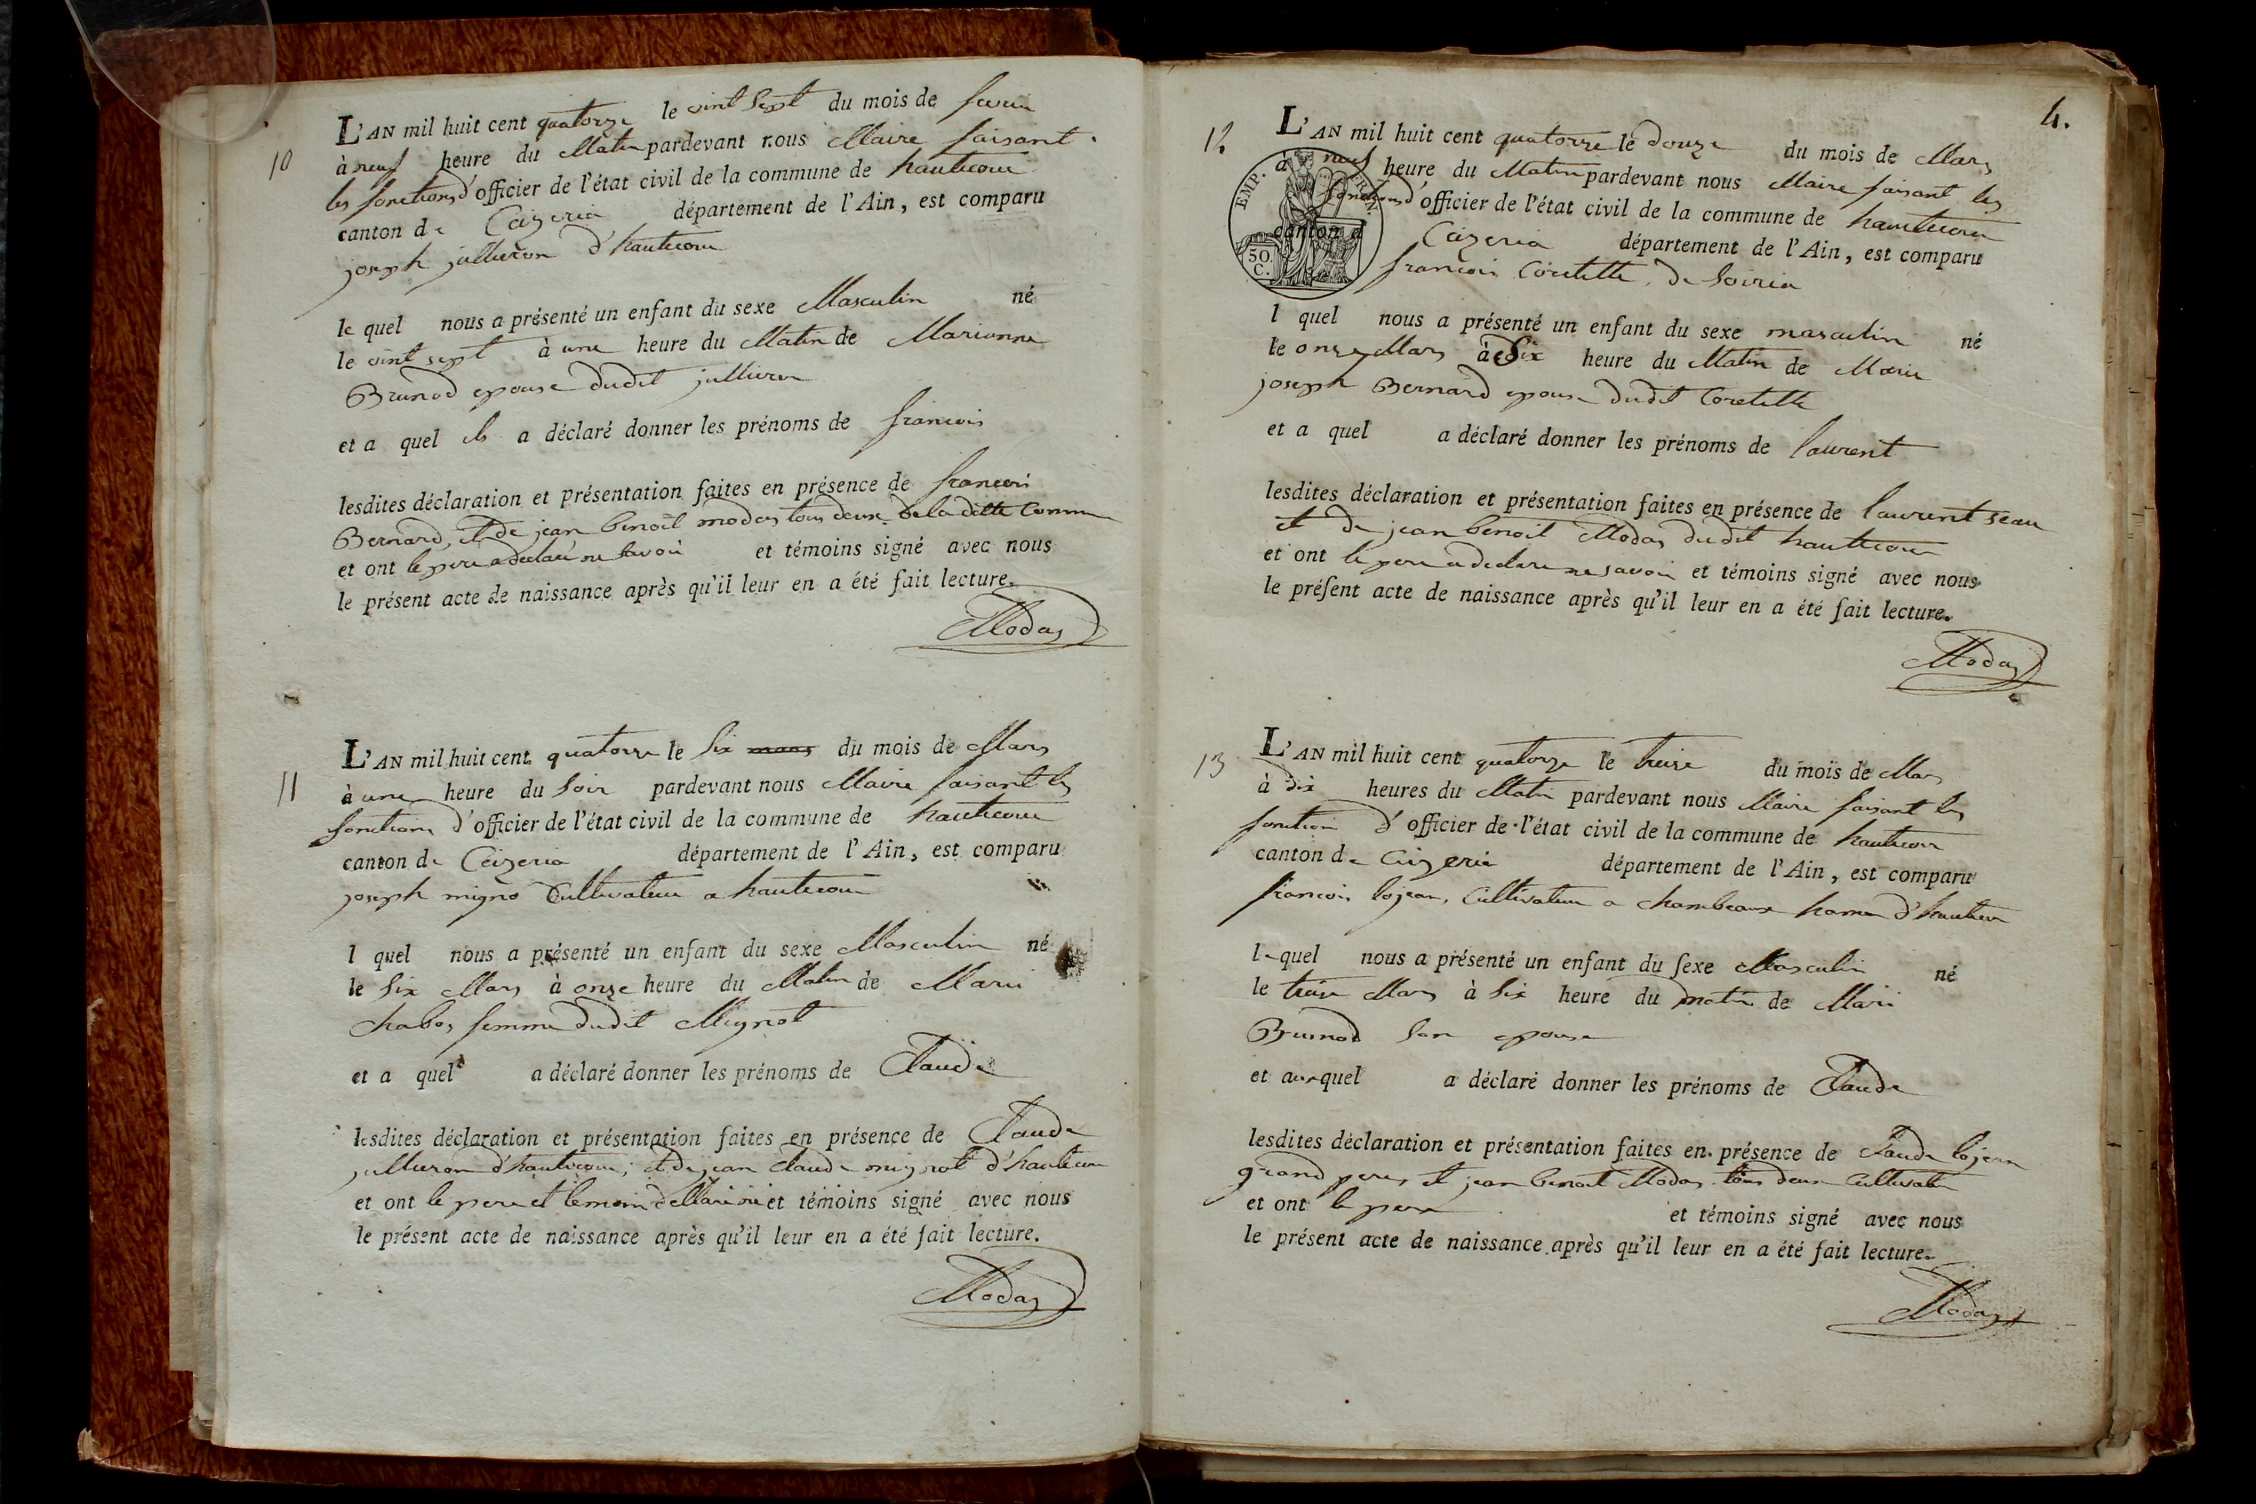 10
L'AN mil huit cent quatorze le vint Sept du mois de fevrie
à neuf heure du Matin pardevant nous Maire faisant
les fonctions d'officier de l'état civil de la commune de hautecour
canton de Ceÿzeria département de l'Ain, est comparu
joseph jullieron d'hautecour
le quel nous a présenté un enfant du sexe Masculin né
le vint sept à une heure du Matin de Marianne
Brunod epouse dudit jullieron
et a quel il a déclaré donner les prénoms de francois
lesdites déclaration et présentation faites en présence de francois
Bernard, et de jean benoit modas tous deux de la ditte Commune
et ont le pere a declaré ne savoir et témoins signé avec nous
le présent acte de naissance après qu'il leur en a été fait lecture.
Modas
11
L'AN mil huit cent quatorze le Six mars du mois de Mars
à une heure du Soir pardevant nous Maire faisant les
fonctions d'officier de l'état civil de la commune de hautecour
canton de Ceÿzeria département de l'Ain, est comparu
joseph migno Cultivateur a hautecour
l quel nous a présenté un enfant du sexe Masculin né
le Six Mars à onze heure du Matin de Marie
Chabos femme dudit Mignot
et a quel a déclaré donner les prénoms de Claude
lesdites déclaration et présentation faites en présence de Claude
jullieron d'hautecour, et de jean Claude mignot d'hautecour
et ont le pere et temoin et témoins signé avec nous
le présent acte de naissance après qu'il leur en a été fait lecture.
Modas
4.
12
L'AN mil huit cent quatorze le douze du mois de Mars
à neuf heure du Matin pardevant nous Maire faisant les
fonctions d'officier de l'état civil de la commune de hautecour
canton d Ceÿzeria département de l'Ain, est comparu
francois Coretette de Soiria
EMP. FRAN.
50. C.
l quel nous a présenté un enfant du sexe masculin né
le onze Mars à Six heure du Matin de Marie
joseph Bernard epouse dudit Coretette
et a quel a déclaré donner les prénoms de laurent
lesdites déclaration et présentation faites en présence de laurent seau
et de jean benoit Modas dudit hautecour
et ont le pere a declare ne savoir et témoins signé avec nous
le présent acte de naissance après qu'il leur en a été fait lecture.
Modas
13
L'AN mil huit cent quatorze le treize du mois de Mars
à dix heures du Matin pardevant nous Maire faisant les
fonction d'officier de l'état civil de la commune de hautecour
canton de Ceyzeria département de l'Ain, est comparu
francois lojean, Cultivateur a Chambeaux hameau d'hautecour
le quel nous a présenté un enfant du sexe Masculin né
le treize Mars à Six heure du matin de Marie
Brunod Son epouse
et auxquel a déclaré donner les prénoms de Claude
lesdites déclaration et présentation faites en présence de Claude lojean
grand pere, et jean benoit Modas tous deux Cultivateur
et ont le pere et témoins signé avec nous
le présent acte de naissance après qu'il leur en a été fait lecture.
Modas